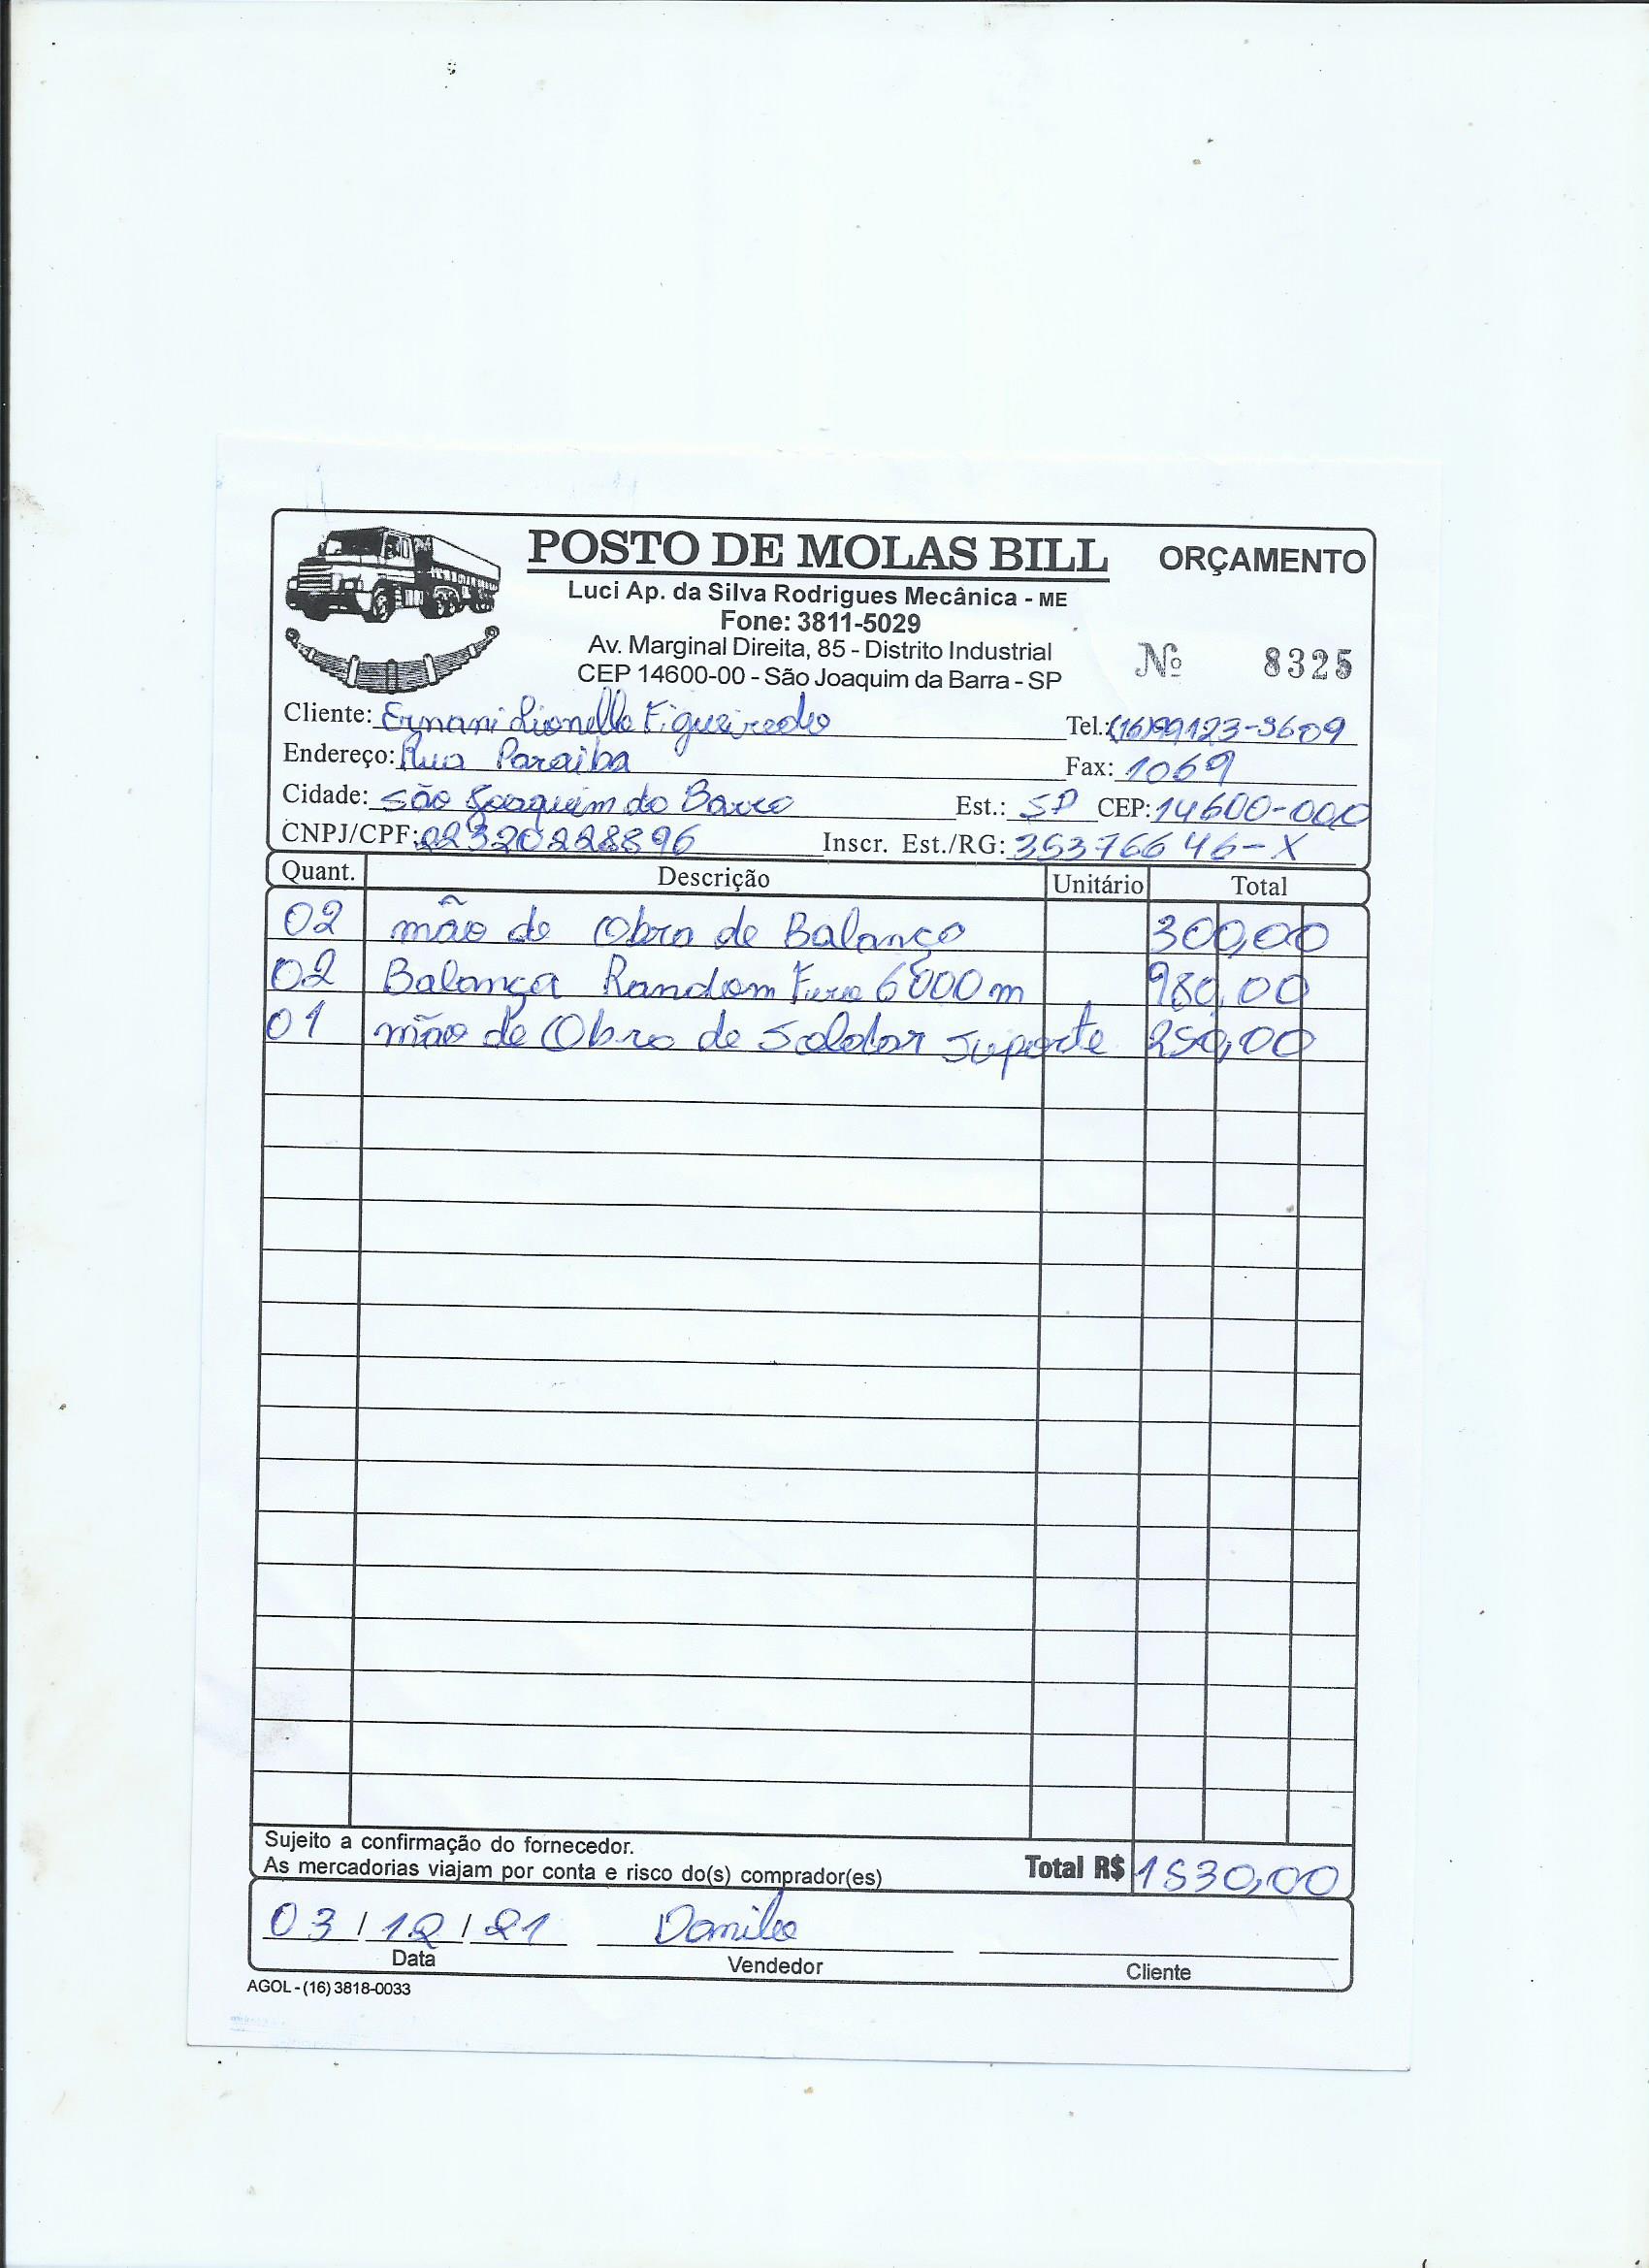 POSTO DE MOLAS BILL ORÇAMENTO
Luci Ap. da Silva Rodrigues Mecânica - ME
Fone: 3811-5029
Av. Marginal Direita, 85 - Distrito Industrial
CEP 14600-00 - São Joaquim da Barra - SP
Nº 8325
Cliente: Ernani Lionello Figueiredo Tel.: (16)99123-3609
Endereço: Rua Paraiba Fax: 1069
Cidade: São Joaquim da Barra Est.: SP CEP: 14600-000
CNPJ/CPF: 02320228896 Inscr. Est./RG: 35376646-X
Quant. Descrição Unitário Total
02 mão de Obra de Balança 300,00
02 Balança Random Furo 6000m 980,00
01 mão de Obra de Soldar Suporte 250,00
Sujeito a confirmação do fornecedor.
As mercadorias viajam por conta e risco do(s) comprador(es) Total R$ 1530,00
03 / 12 / 21 Danilo
Data Vendedor Cliente
AGOL - (16) 3818-0033